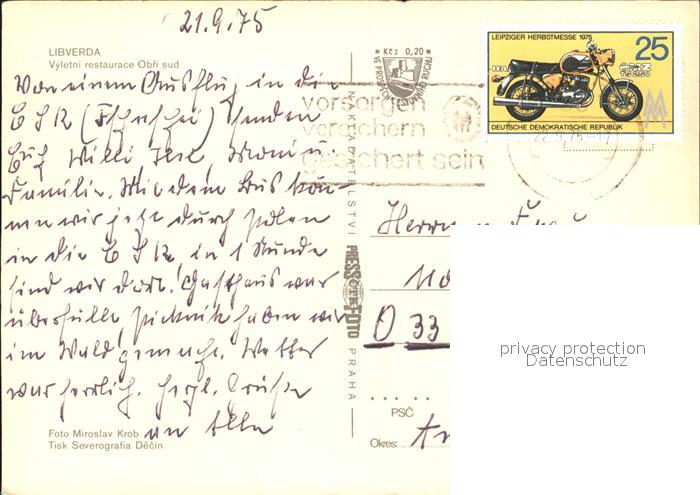 21.9.75
LIBVERDA
Výletní restaurace Obří sud
Von einem Ausflug in die
ČSR senden
Euch Willi
Familie. Mit dem Bus kön-
nen wir jetzt durch Polen
in die ČSR in 1 Stunde
sind wir dort. Gasthaus war
überfüllt, Picknik haben wir
im Wald gemacht. Wetter
war herrlich. Herzl. Grüße
an alle
Foto Miroslav Krob
Tisk Severografia Děčín
Kčs 0,20
NAKLADATELSTVÍ PRESSFOTO PRAHA
vorsorgen
versichern
gesichert sein
LEIPZIGER HERBSTMESSE 1975
25
MZ
TS 250
DEUTSCHE DEMOKRATISCHE REPUBLIK
Herrn u. Frau
O 33
PSČ
Okres:
privacy protection
Datenschutz